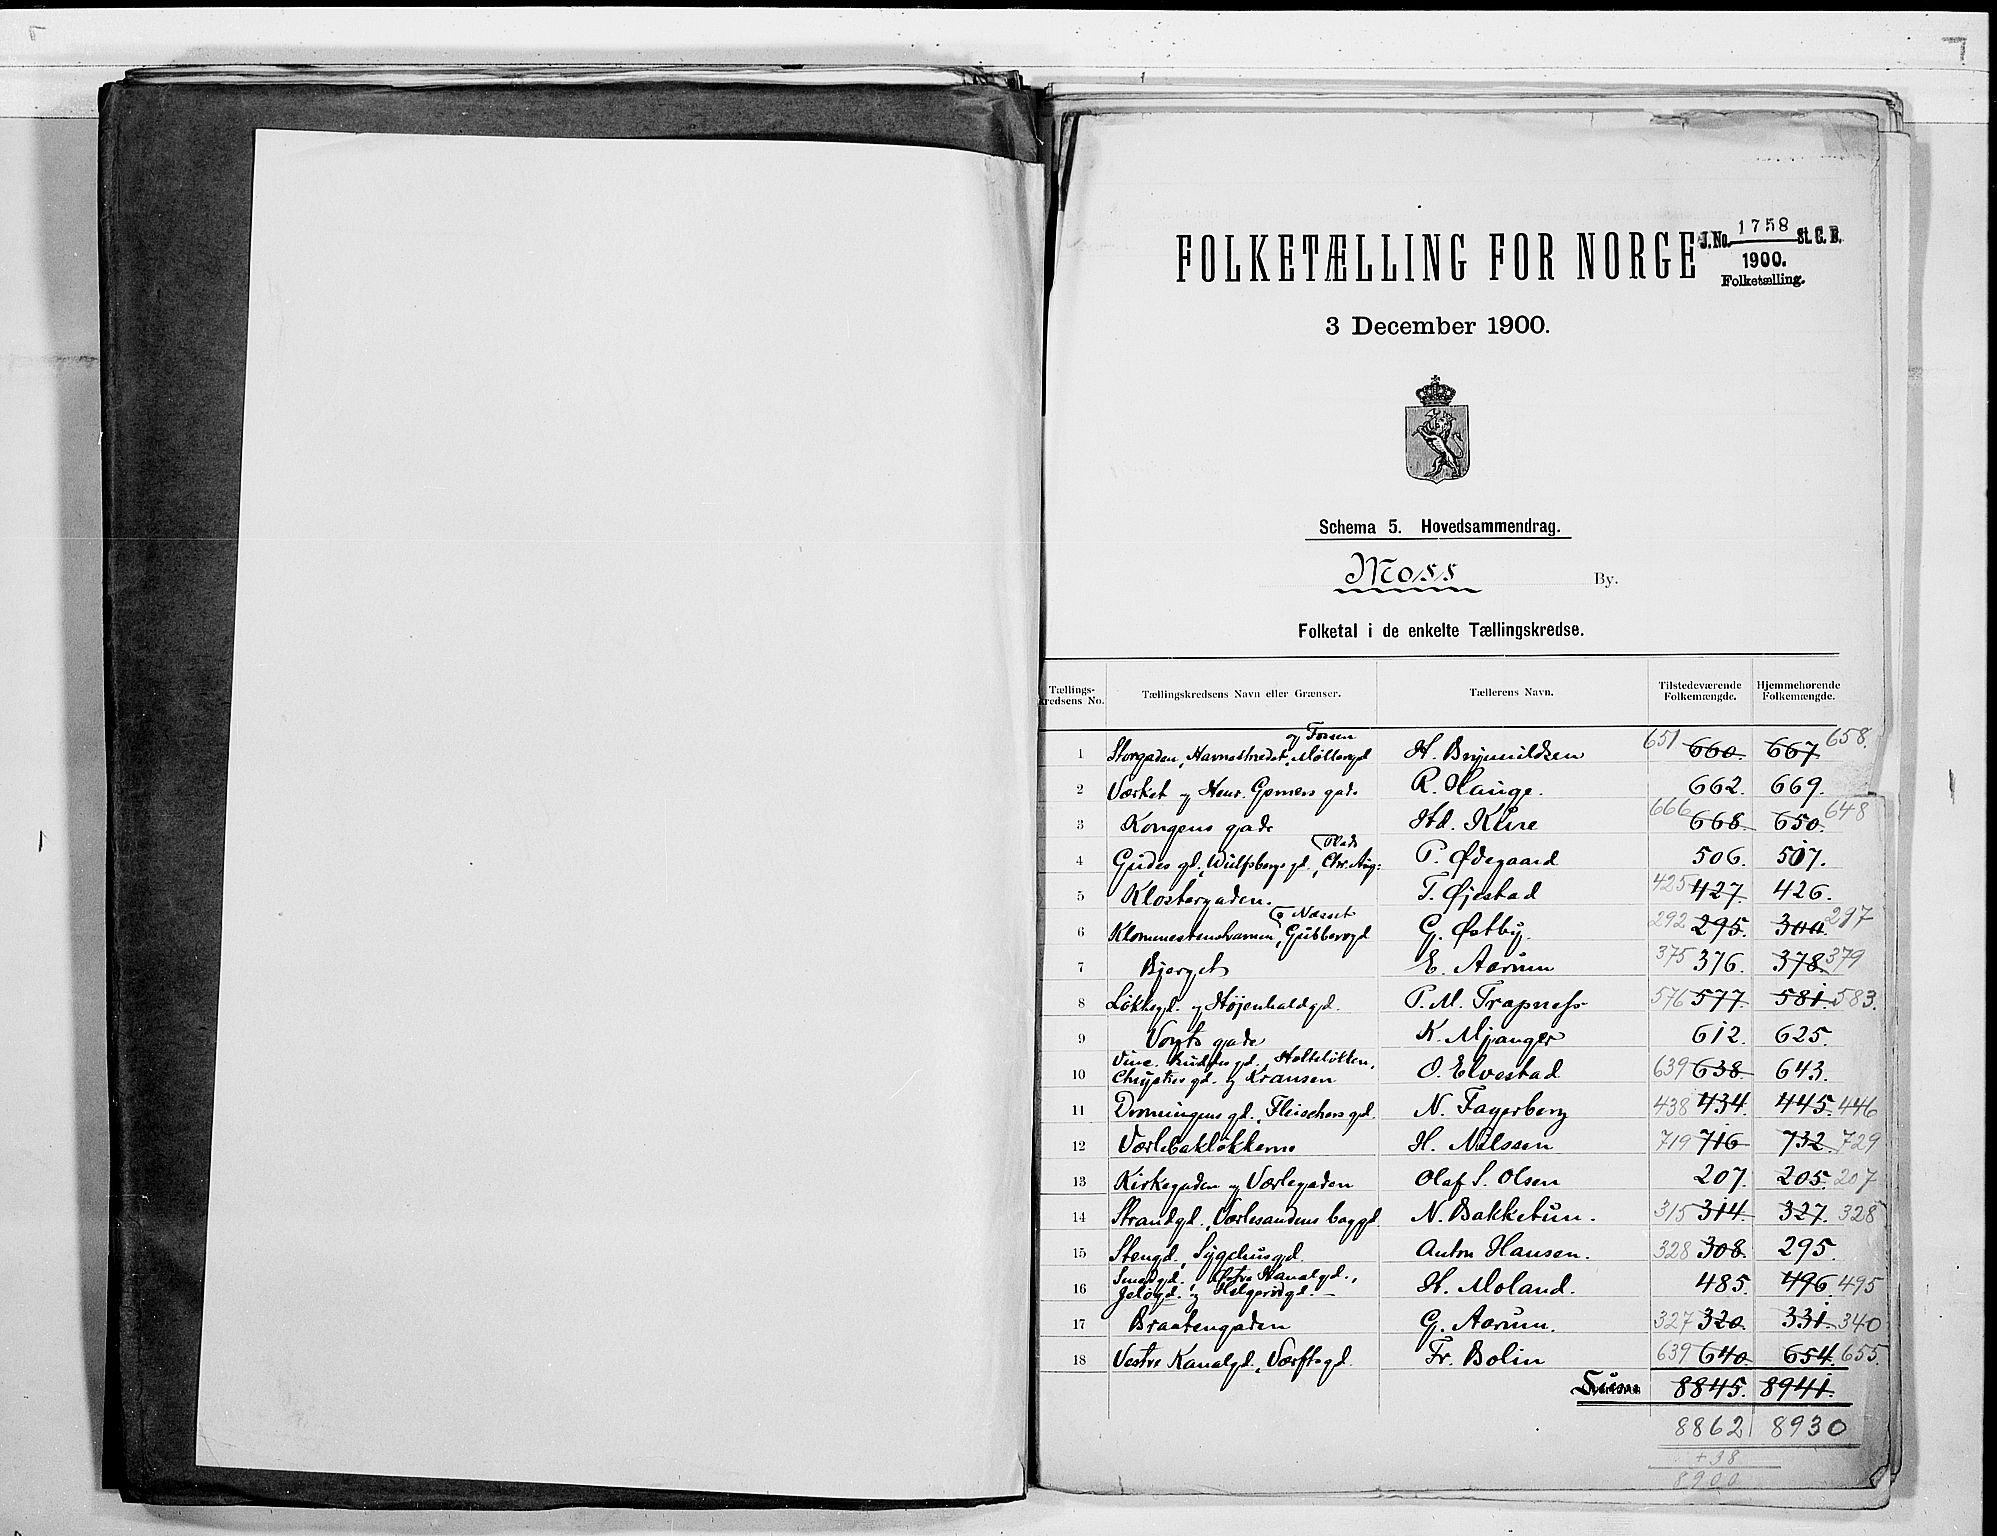 FOLKETÆLLING FOR NORGE
J.No. 1758 St. C. B.
1900.
Folketælling.
3 December 1900.
Schema 5. Hovedsammendrag.
Moss By.
Folketal i de enkelte Tællingskredse.
Tællings-kredsens No. Tællingskredsens Navn eller Grænser. Tællerens Navn. Tilstedeværende Folkemængde. Hjemmehørende Folkemængde.
og Fossen
1 Storgaden, Havnestrædet, Møllergd H. Brynildsen 651 660. 667 658.
2 Værket og Henr. Gerners gade R. Hauge. 662. 669.
3 Kongens gade Hd. Kure 666 668. 650. 648
Plads
4 Gudes gd., Wulfsbergs gd., Chr. Aug: P. Ødegaard 506. 507.
5 Klostergaden. T. Øjestad 425 427. 426.
og Næsset
6 Klommestenshavnen, Gubbergd G. Østby. 292 295. 300. 297
7 Bjerget E. Aarum 375 376. 378. 379
8 Løkkegd. og Højenhaldgd. P. M. Trapness 576 577. 581. 583.
9 Vogts gade K. Mjanger 612. 625.
10 Vinc. gd., Holteløkken, Chrysties gd. og Kransen O. Elvestad 639 638. 643.
11 Dronningens gd. Fleischers gd. N. Fagerberg 438 434. 445. 446
12 Værlebakløkkerne H. Nilssen 719 716 732. 729
13 Kirkegaden og Værlegaden Olaf S. Olsen 207. 205. 207
14 Strandgd., Værlesandens baggd N. Bakketun. 315 314. 327. 328
15 Stengd., Sygehusgd. Anton Hansen. 328 308. 295.
16 Smedgd., Østre Kanalgd., Jeløgd. og Helgerødgd. H. Moland. 485. 496. 495
17 Braatengaden G. Aarum. 327 320. 331. 340
18 Vestre Kanalgd., Værftsgd. Fr. Bolin 639 640. 654. 655.
Sum 8845. 8941.
8862 8930
+ 38
8900